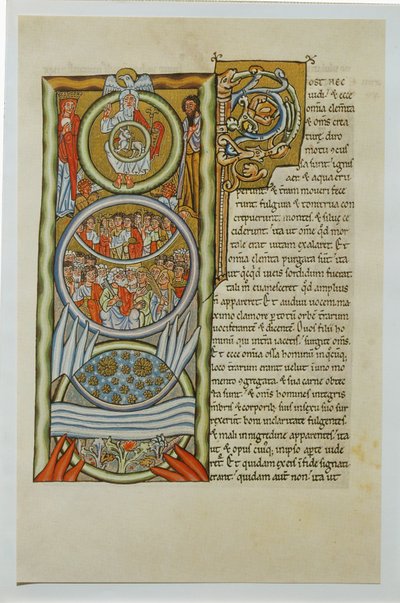 Post hec
vidi & ecce
omia elemta
& oms crea
ture diro
motu ꝯcus
sa sunt. ignis
aer & aqua eru
perunt. & tram moveri fece
runt fulgura & tonitrua con
crepuerunt. montes & silue ce
ciderunt. ita ut ome qd mor
tale erat vitam exalaret. Et
omia elemta purgata sunt ita
ut qcqd in eis sordidum fuerat.
tali m evanesceret qd amplius
n appareret. Et audivi vocem ma
ximo clamore p totu orbe trarum
vociferante & dicente. O vos filii ho
minu qui in tra iacetis. surgite oms.
Et ecce omia ossa hominu in qcuq,
loco trarum erant velut in uno mo
mento ꝯgregata & sua carne obtec
ta sunt & oms homines integris
mbris & corporib, suis in sexu suo sur
rexerunt. boni in claritate fulgentes
& mali in nigredine apparentes. ita
ut & opus cuiq, in ipso apte vide
ret. Et quidam ex eis in fide signati
erant. quidam aut non. ita ut